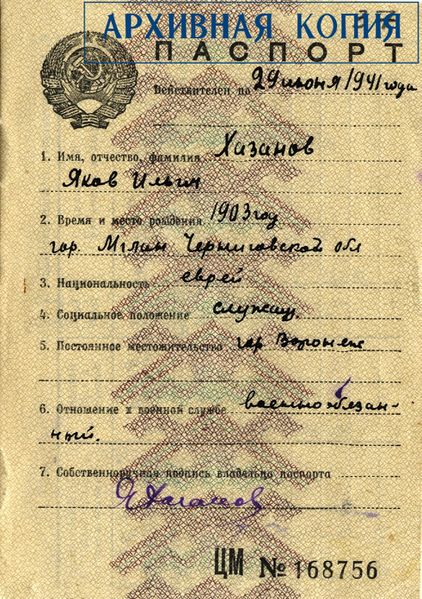 АРХИВНАЯ КОПИЯ
ПАСПОРТ
Действителен по 29 июня 1941 года
1. Имя, отчество, фамилия Хазанов
Яков Ильич
2. Время и место рождения 1903 год
гор. Мглин Черниговской обл
3. Национальность еврей
4. Социальное положение служащ.
5. Постоянное местожительство гор Воронеж
6. Отношение к военной службе военнообязан-
ный.
7. Собственноручная подпись владельца паспорта
ЯХазанов
ЦМ № 168756